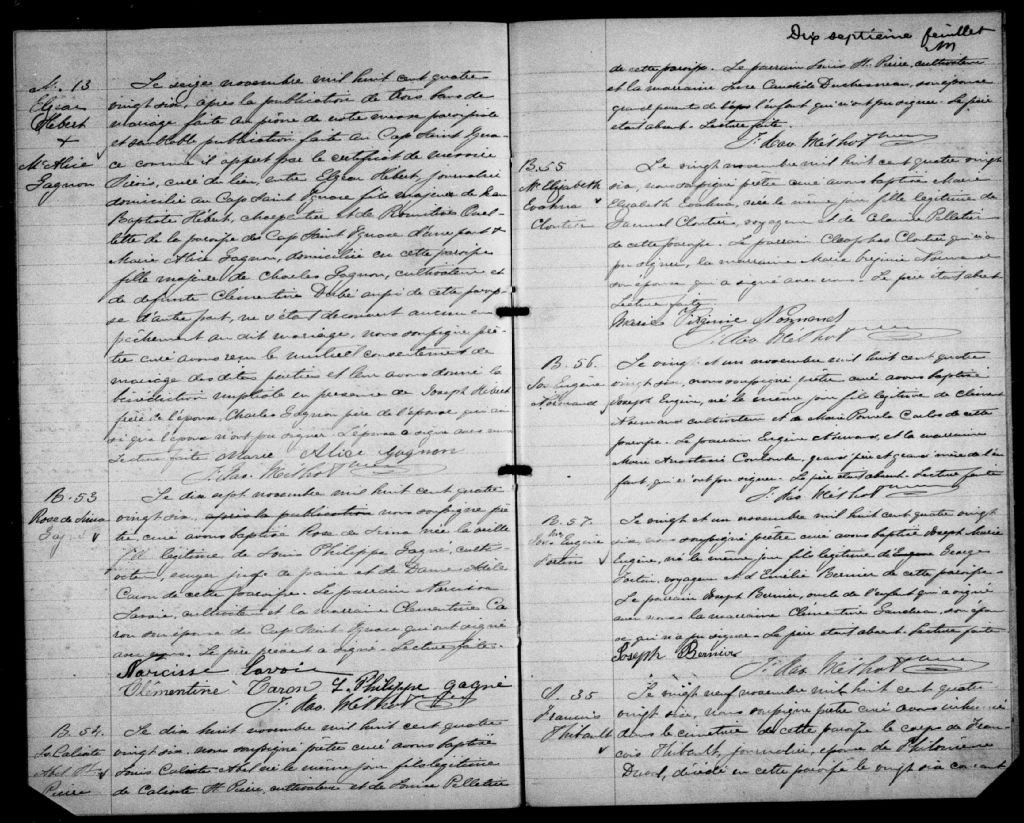 M. 13
Elzéar
Hébert
+
M. Alice
Gagnon
Le seize novembre mil huit cent quatre
vingt six, après la publication de trois bans de
mariage faite au prône de notre messe paroissiale
et semblable publication faite au Cap Saint Igna-
ce comme il appert par le certificat de messire
curé du lieu, entre Elzéar Hébert, journalier
domicilié au Cap Saint Ignace fils majeur de Jean
Baptiste Hébert, charpentier et de Romuald Ouel-
lette de la paroisse du Cap Saint Ignace d'une part &
Marie Alice Gagnon, domiciliée en cette paroisse
fille majeure de Charles Gagnon, cultivateur et
de défunte Clémentine Dubé aussi de cette parois-
se d'autre part, ne s'étant découvert aucun em-
pêchement au dit mariage, nous soussigné prê-
tre curé avons reçu le mutuel consentement de
mariage des dites parties et leur avons donné la
bénédiction nuptiale en présence de Joseph Hébert
père de l'époux, Charles Gagnon père de l'épouse, qui ain
si que l'époux n'ont pu signer. L'épouse a signé avec nous
Lecture faite Marie Alice Gagnon
F. Méthot ptre
B. 53
Rose de Lima
Gagné
Le dix sept novembre mil huit cent quatre
vingt six, après la publication nous soussigné prê-
tre, curé avons baptisé Rose de Lima née la veille
fille légitime de Louis Philippe Gagné, culti-
vateur, et de Dame Adèle
Caron de cette paroisse. Le parrain Narcisse
Lavoie, cultivateur et la marraine Clémentine Ca
ron son épouse du Cap Saint Ignace qui ont signé
avec nous. Le père présent a signé. Lecture faite.
Narcisse Lavoie
Clémentine Caron L. Philippe Gagné
F. Méthot ptre
B. 54.
Ls Calixte
Abel St
Pierre
Le dix huit novembre mil huit cent quatre
vingt six, nous soussigné prêtre curé avons baptisé
Louis Calixte Abel né le même jour fils légitime
de Calixte St Pierre, cultivateur et de Louise Pelletier
Dix septième feuillet
de cette paroisse. Le parrain Louis St. Pierre, cultivateur
et la marraine Luce Candide Duchesneau, son épouse
grands parents de l'enfant qui n'ont pu signer. Le père
était absent. Lecture faite.
F. Méthot ptre
B. 55
M. Elizabeth
Evohna
Cloutier
Le vingt novembre mil huit cent quatre vingt
six, nous soussigné prêtre curé avons baptisé Marie
Elizabeth Evohna, née le même jour fille légitime de
Samuel Cloutier, voyageur et de Claire Pelletier
de cette paroisse. Le parrain Cléophas Cloutier qui n'a
pu signer, la marraine Marie Virginie Normand
son épouse, qui a signé avec nous. Le père était absent
Lecture faite
Marie Virginie Normand
F. Méthot ptre
B. 56.
Jos Eugène
Normand
Le vingt et un novembre mil huit cent quatre
vingt six, nous soussigné prêtre curé avons baptisé
Joseph Eugène, né le même jour fils légitime de Clément
Normand cultivateur et de Marie de cette
paroisse. Le parrain Eugène Normand, et la marraine
Marie Anastasie Coulombe, grand père et grand mère de l'en
fant, qui n'ont pu signer. Le père était absent. Lecture faite
F. Méthot ptre
B. 57.
Jos. Eugène
Fortin
Le vingt et un novembre mil huit cent quatre vingt
six, nous soussigné prêtre curé avons baptisé Joseph Marie
Eugène, né le même jour fils légitime d'Eugène George
Fortin, voyageur et d'Emélie Bernier de cette paroisse.
Le parrain Joseph Bernier, oncle de l'enfant qui a signé
avec nous la marraine Clémentine Gendreau, son épou
se qui n'a pu signer. Le père était absent. Lecture faite
Joseph Bernier
F. Méthot ptre
S. 35
Francois
Thibault
Le vingt neuf novembre mil huit cent quatre
vingt six, nous soussigné prêtre curé avons inhumé
dans le cimetière de cette paroisse le corps de Fran
cois Thibault, journalier, époux de Philomène
David, décédé en cette paroisse le vingt six courant